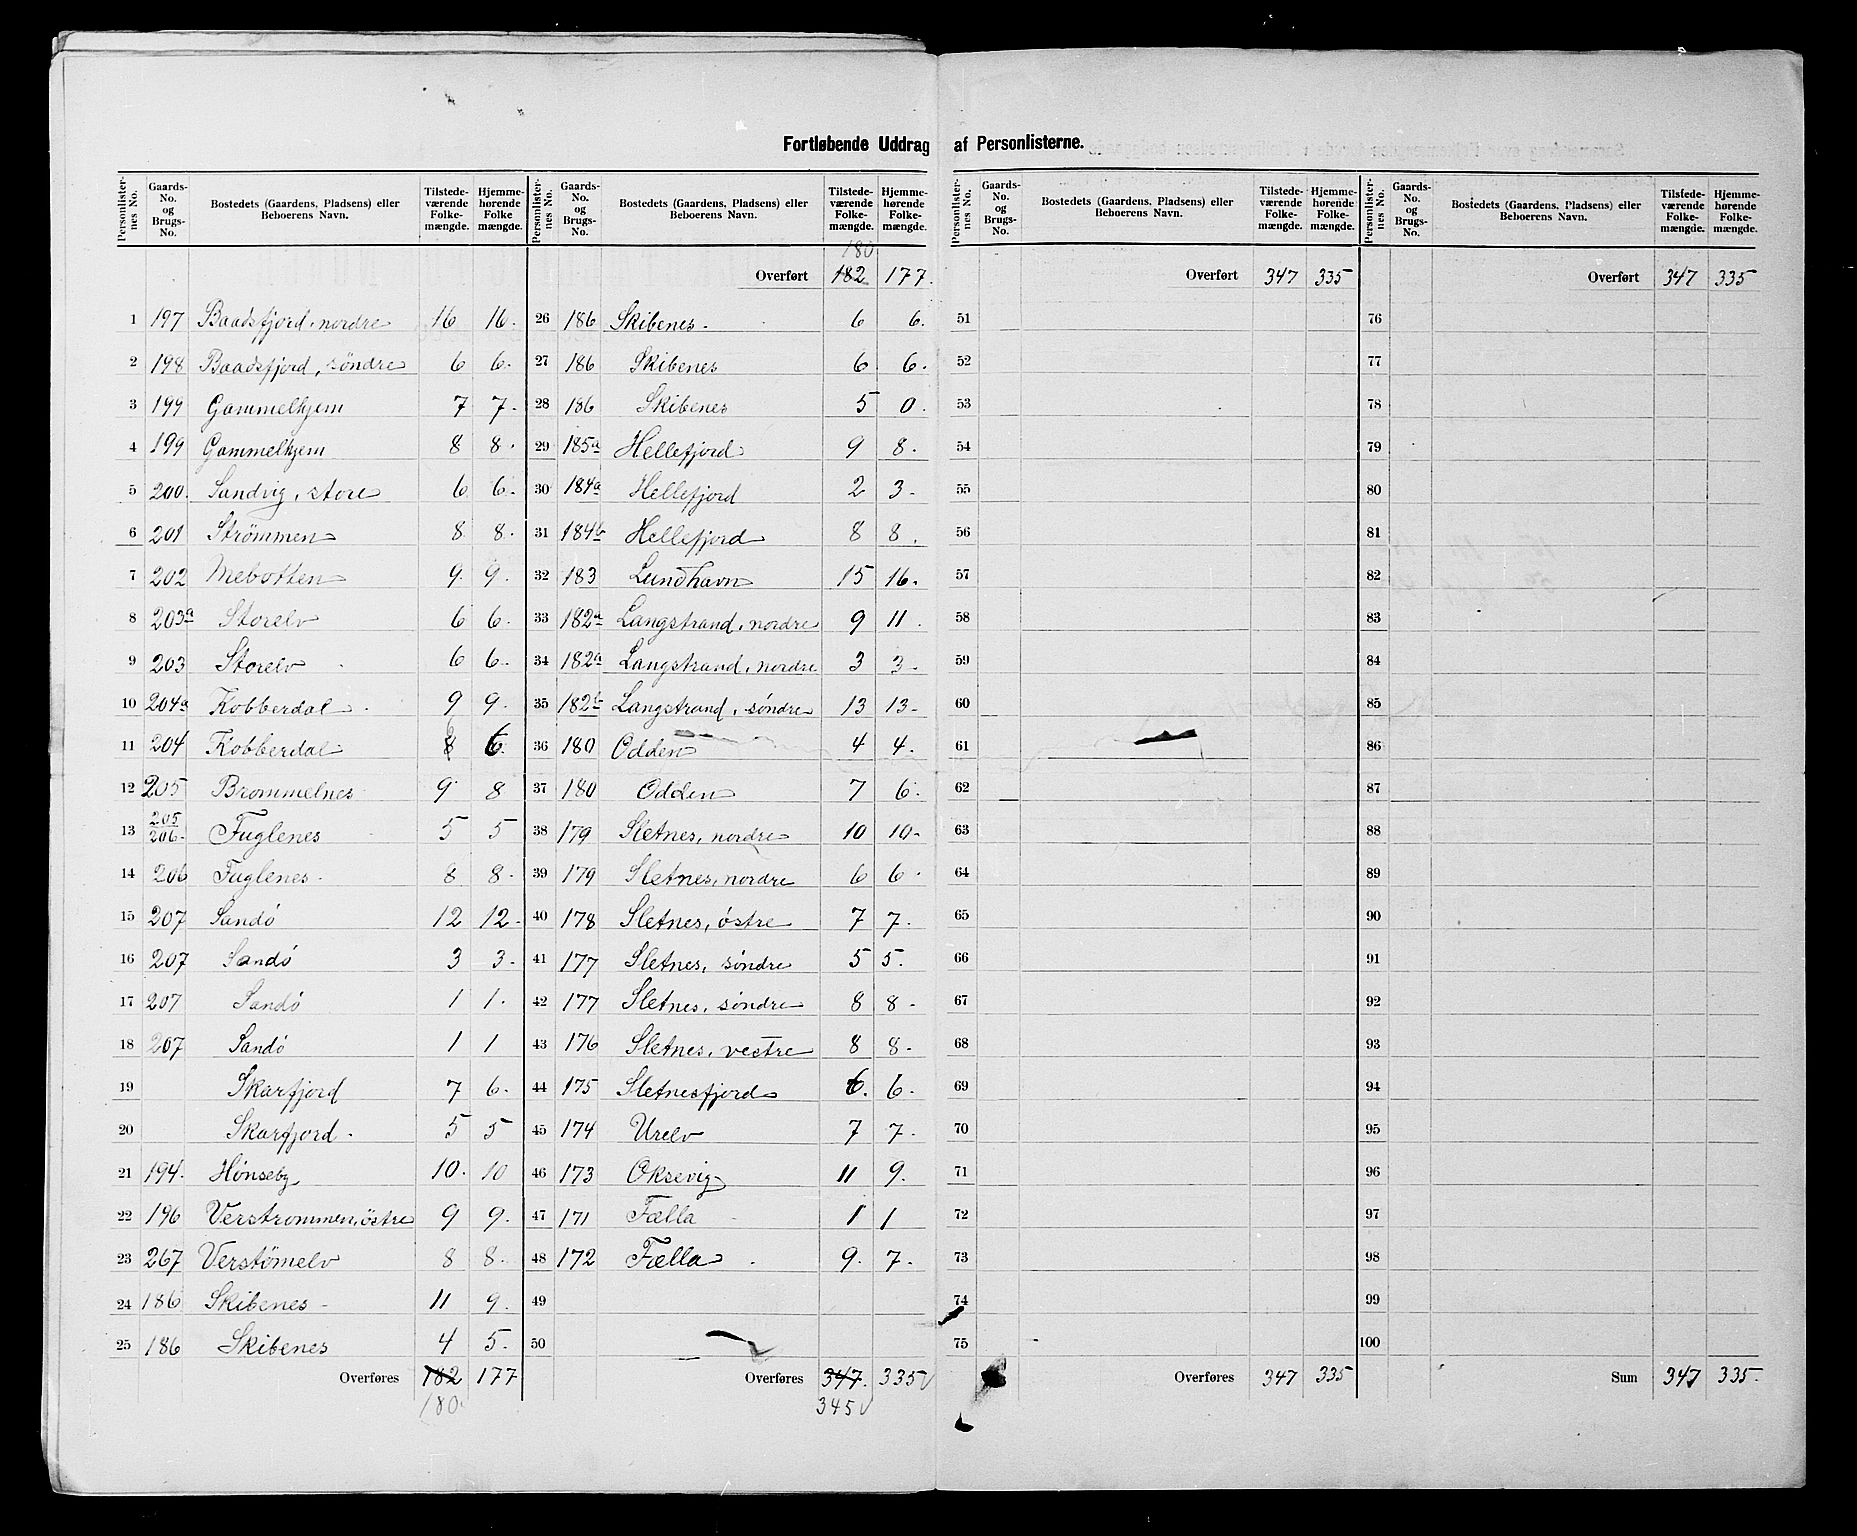 Fortløbende Uddrag af Personlisterne.
Personlister-nes No. | Gaards-No. og Brugs-No. | Bostedets (Gaardens, Pladsens) eller Beboerens Navn. | Tilstede-værende Folke-mængde. | Hjemme-hørende Folke mængde.
1 197 Baadsfjord, nordre 16 16.
2 198 Baadsfjord, søndre 6 6.
3 199 Gammelhjem 7 7.
4 199 Gammelhjem 8 8.
5 200. Sandvig, store 6 6.
6 201 Strømmen 8 8.
7 202 Mebotten 9. 9.
8 203a Storelv 6 6.
9 203 Storelv 6 6.
10 204a Kobberdal 9 9.
11 204 Kobberdal 8 6 6
12 205 Brommelnes 9. 8
13 205/206. Fuglenes 5 5
14 206 Fuglenes. 8 8.
15 207 Sandö 12 12.
16 207 Sandö 3 3.
17 207 Sandö 1 1.
18 207 Sandö 1 1
19 Skarfjord 7 6.
20 Skarfjord. 5 5
21 194. Hönseby 10. 10
22 196 Verstrommen, östre 9 9.
23 267 Verstömelv 8 8.
24 186 Skibenes 11 9.
25 186 Skibenes 4 5.
Overføres 182 177
180.
Personlister-nes No. | Gaards-No. og Brugs-No. | Bostedets (Gaardens, Pladsens) eller Beboerens Navn. | Tilstede-værende Folke-mængde. | Hjemme-hørende Folke-mængde.
180
Overført 182 177.
26 186 Skibenes. 6 6.
27 186 Skibenes 6 6.
28 186 Skibenes 5 0.
29 185a Hellefjord 9 8.
30 184a Hellefjord 2 3.
31 184b Hellefjord 8 8.
32 183 Lundhavn 15 16.
33 182a Langstrand, nordre 9 11.
34 182a Langstrand, nordre 3 3.
35 182b Langstrand, söndre 13 13.
36 180 Odden 4 4.
37 180 Odden 7 6.
38 179 Sletnes, nordre 10 10.
39 179 Sletnes, nordre 6 6.
40 178 Sletnes, östre 7 7.
41 177 Sletnes, söndre 5 5.
42 177 Sletnes, söndre 8 8.
43 176 Sletnes, vestre 8 8.
44 175 Sletnesfjord 6. 6.
45 174 Urelv 7 7.
46 173 Oksevig 11 9.
47 171 Fælla 1 1
48 172 Fælla 9. 7.
49
50
Overføres 347. 335 v
345 v
Personlister-nes No. | Gaards-No. og Brugs-No. | Bostedets (Gaardens, Pladsens) eller Beboerens Navn. | Tilstede-værende Folke-mængde. | Hjemme-hørende Folke-mængde.
Overført 347 335
51
52
53
54
55
56
57
58
59
60
61
62
63
64
65
66
67
68
69
70
71
72
73
74
75
Overføres 347 335
Personlister-nes No. | Gaards-No. og Brugs-No. | Bostedets (Gaardens, Pladsens) eller Beboerens Navn. | Tilstede-værende Folke-mængde. | Hjemme-hørende Folke-mængde.
Overført 347 335
76
77
78
79
80
81
82
83
84
85
86
87
88
89
90
91
92
93
94
95
96
97
98
99
100
Sum 347 335.